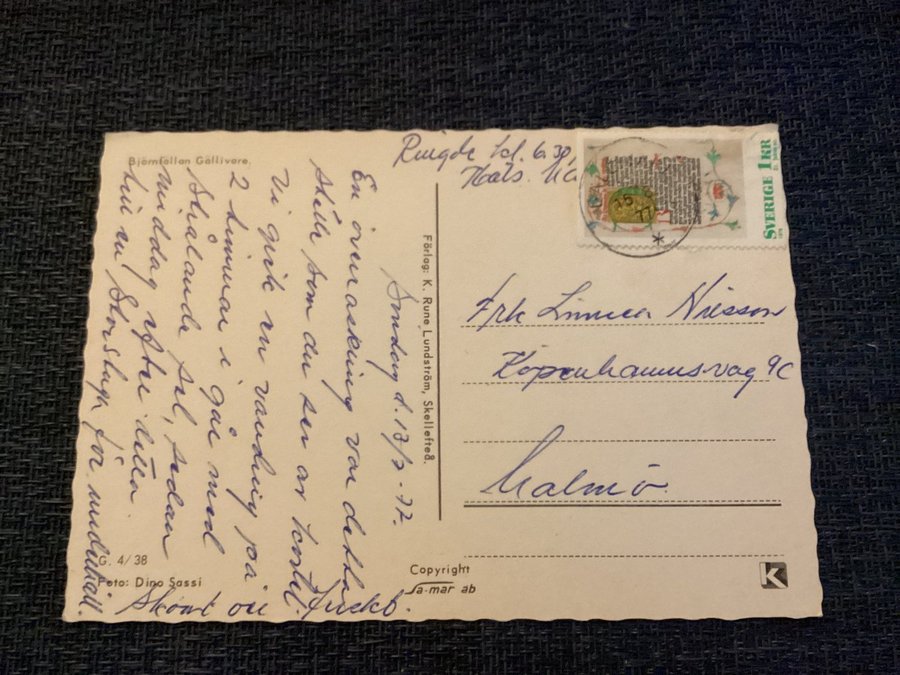 Björnfällan Gällivare.
Ringde kl. 6.30
Häls.
SVERIGE 1 KR
Söndag d. 13/3 - 77.
En överraskning var detta
ställe som du ser av kortet.
Vi gick en vandring på
2 timmar i går med
strålande sol, sedan
middag efter detta
en för underhåll.
Skönt
Förlag: K. Rune Lundström, Skellefteå.
Frk Linnea Nilsson
Köpenhamnsväg 9C
Malmö
G. 4/38
Foto: Dino Sassi
Copyright
Sa-mar ab
K